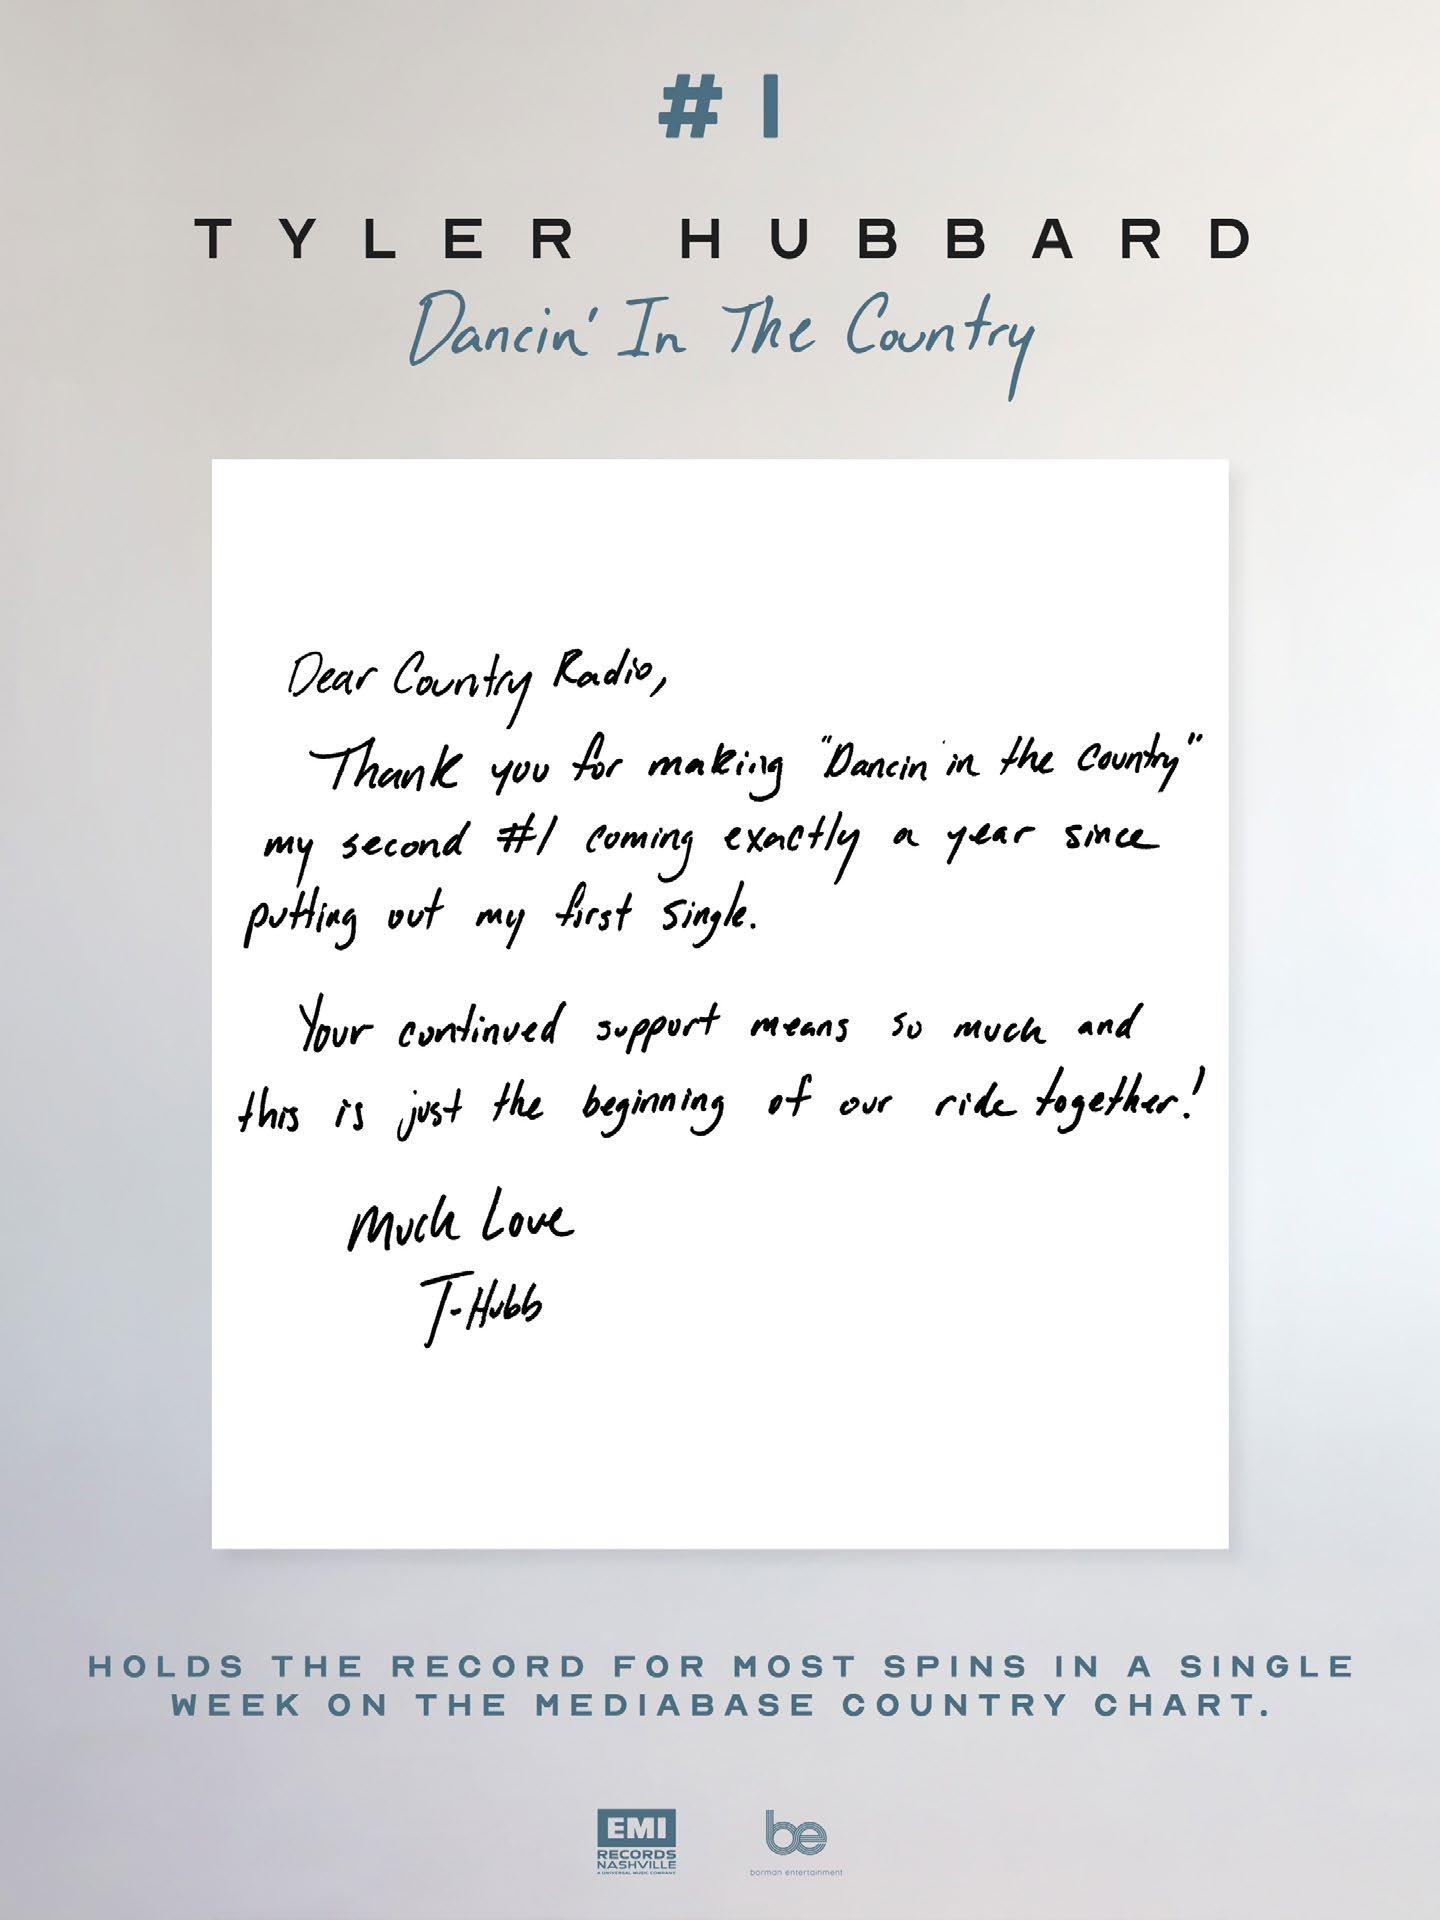 #1
TYLER HUBBARD
Dancin' In The Country
Dear Country Radio,
Thank you for making "Dancin' in the Country"
my second #1 coming exactly a year since
putting out my first single.
Your continued support means so much and
this is just the beginning of our ride together!
Much Love
T-Hubb
HOLDS THE RECORD FOR MOST SPINS IN A SINGLE
WEEK ON THE MEDIABASE COUNTRY CHART.
EMI
RECORDS
NASHVILLE
A UNIVERSAL MUSIC COMPANY
be
borman entertainment